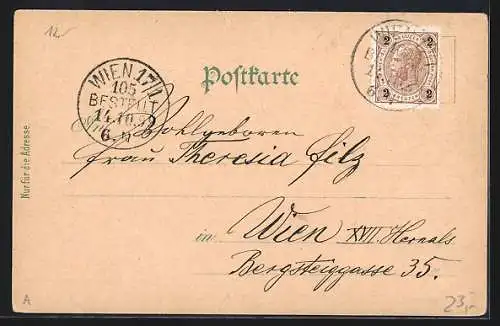 12.-
Postkarte
WIEN 17/1
105
BESTELLT
14.10.99
6.N
WIEN
2 2
2 2
Nur für die Adresse.
Wohlgeboren
Frau Theresia Filz
in Wien XVII. Hernals
Bergsteiggasse 35.
A
23,-